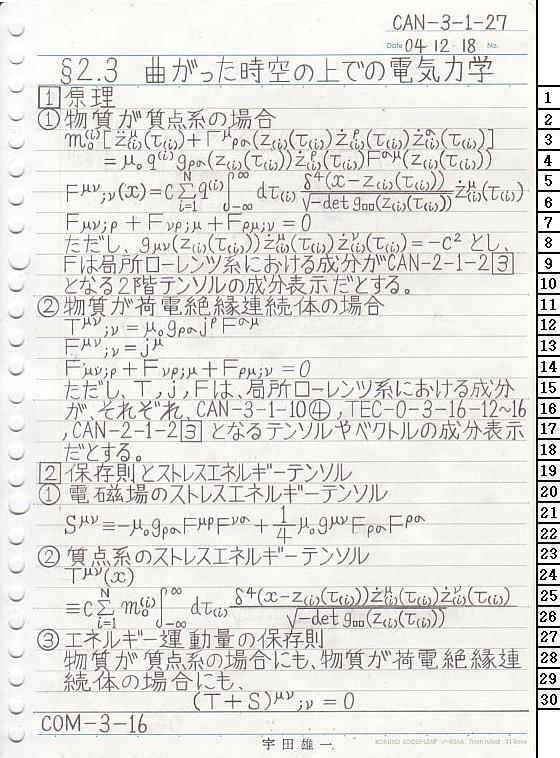 CAN-3-1-27
Date 04・12・18 No.
§2.3 曲がった時空の上での電気力学
1 原理
① 物質が質点系の場合
m₀⁽ⁱ⁾[z̈₍ᵢ₎^μ(τ₍ᵢ₎)+Γ^μ_ρα(z₍ᵢ₎(τ₍ᵢ₎))ż₍ᵢ₎^ρ(τ₍ᵢ₎)ż₍ᵢ₎^α(τ₍ᵢ₎)]
=μ₀q⁽ⁱ⁾g_ρα(z₍ᵢ₎(τ₍ᵢ₎))ż₍ᵢ₎^ρ(τ₍ᵢ₎)F^αμ(z₍ᵢ₎(τ₍ᵢ₎))
F^μν_;ν(x)=c∑_{i=1}^{N}q⁽ⁱ⁾∫_{-∞}^{∞}dτ₍ᵢ₎ δ⁴(x-z₍ᵢ₎(τ₍ᵢ₎))/√(-det g_□□(z₍ᵢ₎(τ₍ᵢ₎))) ż₍ᵢ₎^μ(τ₍ᵢ₎)
F_μν;ρ+F_νρ;μ+F_ρμ;ν=0
ただし、g_μν(z₍ᵢ₎(τ₍ᵢ₎))ż₍ᵢ₎^μ(τ₍ᵢ₎)ż₍ᵢ₎^ν(τ₍ᵢ₎)=-c²とし、
Fは局所ローレンツ系における成分がCAN-2-1-2 3
となる2階テンソルの成分表示だとする。
② 物質が荷電絶縁連続体の場合
T^μν_;ν=μ₀g_ρα j^ρ F^αμ
F^μν_;ν=j^μ
F_μν;ρ+F_νρ;μ+F_ρμ;ν=0
ただし、T,j,Fは、局所ローレンツ系における成分
が、それぞれ、CAN-3-1-10④,TEC-0-3-16-12~16
,CAN-2-1-2 3 となるテンソルやベクトルの成分表示
だとする。
2 保存則とストレスエネルギーテンソル
① 電磁場のストレスエネルギーテンソル
S^μν≡-μ₀g_ρα F^μρ F^να+1/4 μ₀g^μν F_ρα F^ρα
② 質点系のストレスエネルギーテンソル
T^μν(x)
≡c∑_{i=1}^{N}m₀⁽ⁱ⁾∫_{-∞}^{∞}dτ₍ᵢ₎ δ⁴(x-z₍ᵢ₎(τ₍ᵢ₎))ż₍ᵢ₎^μ(τ₍ᵢ₎)ż₍ᵢ₎^ν(τ₍ᵢ₎)/√(-det g_□□(z₍ᵢ₎(τ₍ᵢ₎)))
③ エネルギー運動量の保存則
物質が質点系の場合にも、物質が荷電絶縁連
続体の場合にも、
(T+S)^μν_;ν=0
COM-3-16
宇田雄一
KOKUYO LOOSE-LEAF ノ-836A 7mm ruled 31 lines
1
2
3
4
5
6
7
8
9
10
11
12
13
14
15
16
17
18
19
20
21
22
23
24
25
26
27
28
29
30